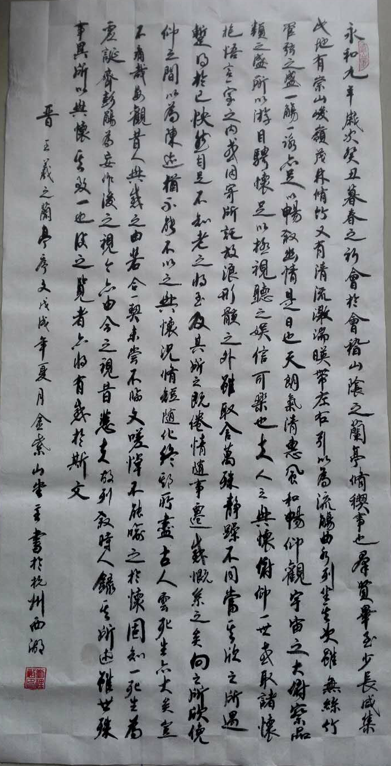 永和九年歲次癸丑暮春之初會於會稽山陰之蘭亭脩稧事也羣賢畢至少長咸集
此地有崇山峻嶺茂林脩竹又有清流激湍暎帶左右引以為流觴曲水列坐其次雖無絲竹
管弦之盛一觴一詠亦足以暢敘幽情是日也天朗氣清惠風和暢仰觀宇宙之大俯察品
類之盛所以遊目騁懷足以極視聽之娛信可樂也夫人之俯仰一世或取諸懷
抱悟言一室之內或因寄所託放浪形骸之外雖取舍萬殊靜躁不同當其欣之所遇
暫得於己快然自足不知老之將至及其所之既倦情隨事遷感慨係之矣向之所欣俛
仰之間以為陳迹猶不能不以之興懷況脩短隨化終期於盡古人雲死生亦大矣豈
不痛哉每觀昔人興感之由若合一契未嘗不臨文嗟悼不能喻之於懷固知一死生為
虛誕齊彭殤為妄作後之視今亦由今之視昔悲夫故列敘時人錄其所述雖世殊
事異所以興懷其致一也後之覽者亦將有感於斯文
晉王羲之蘭亭序文戊戌年夏月金紫山堂主書於杭州西湖